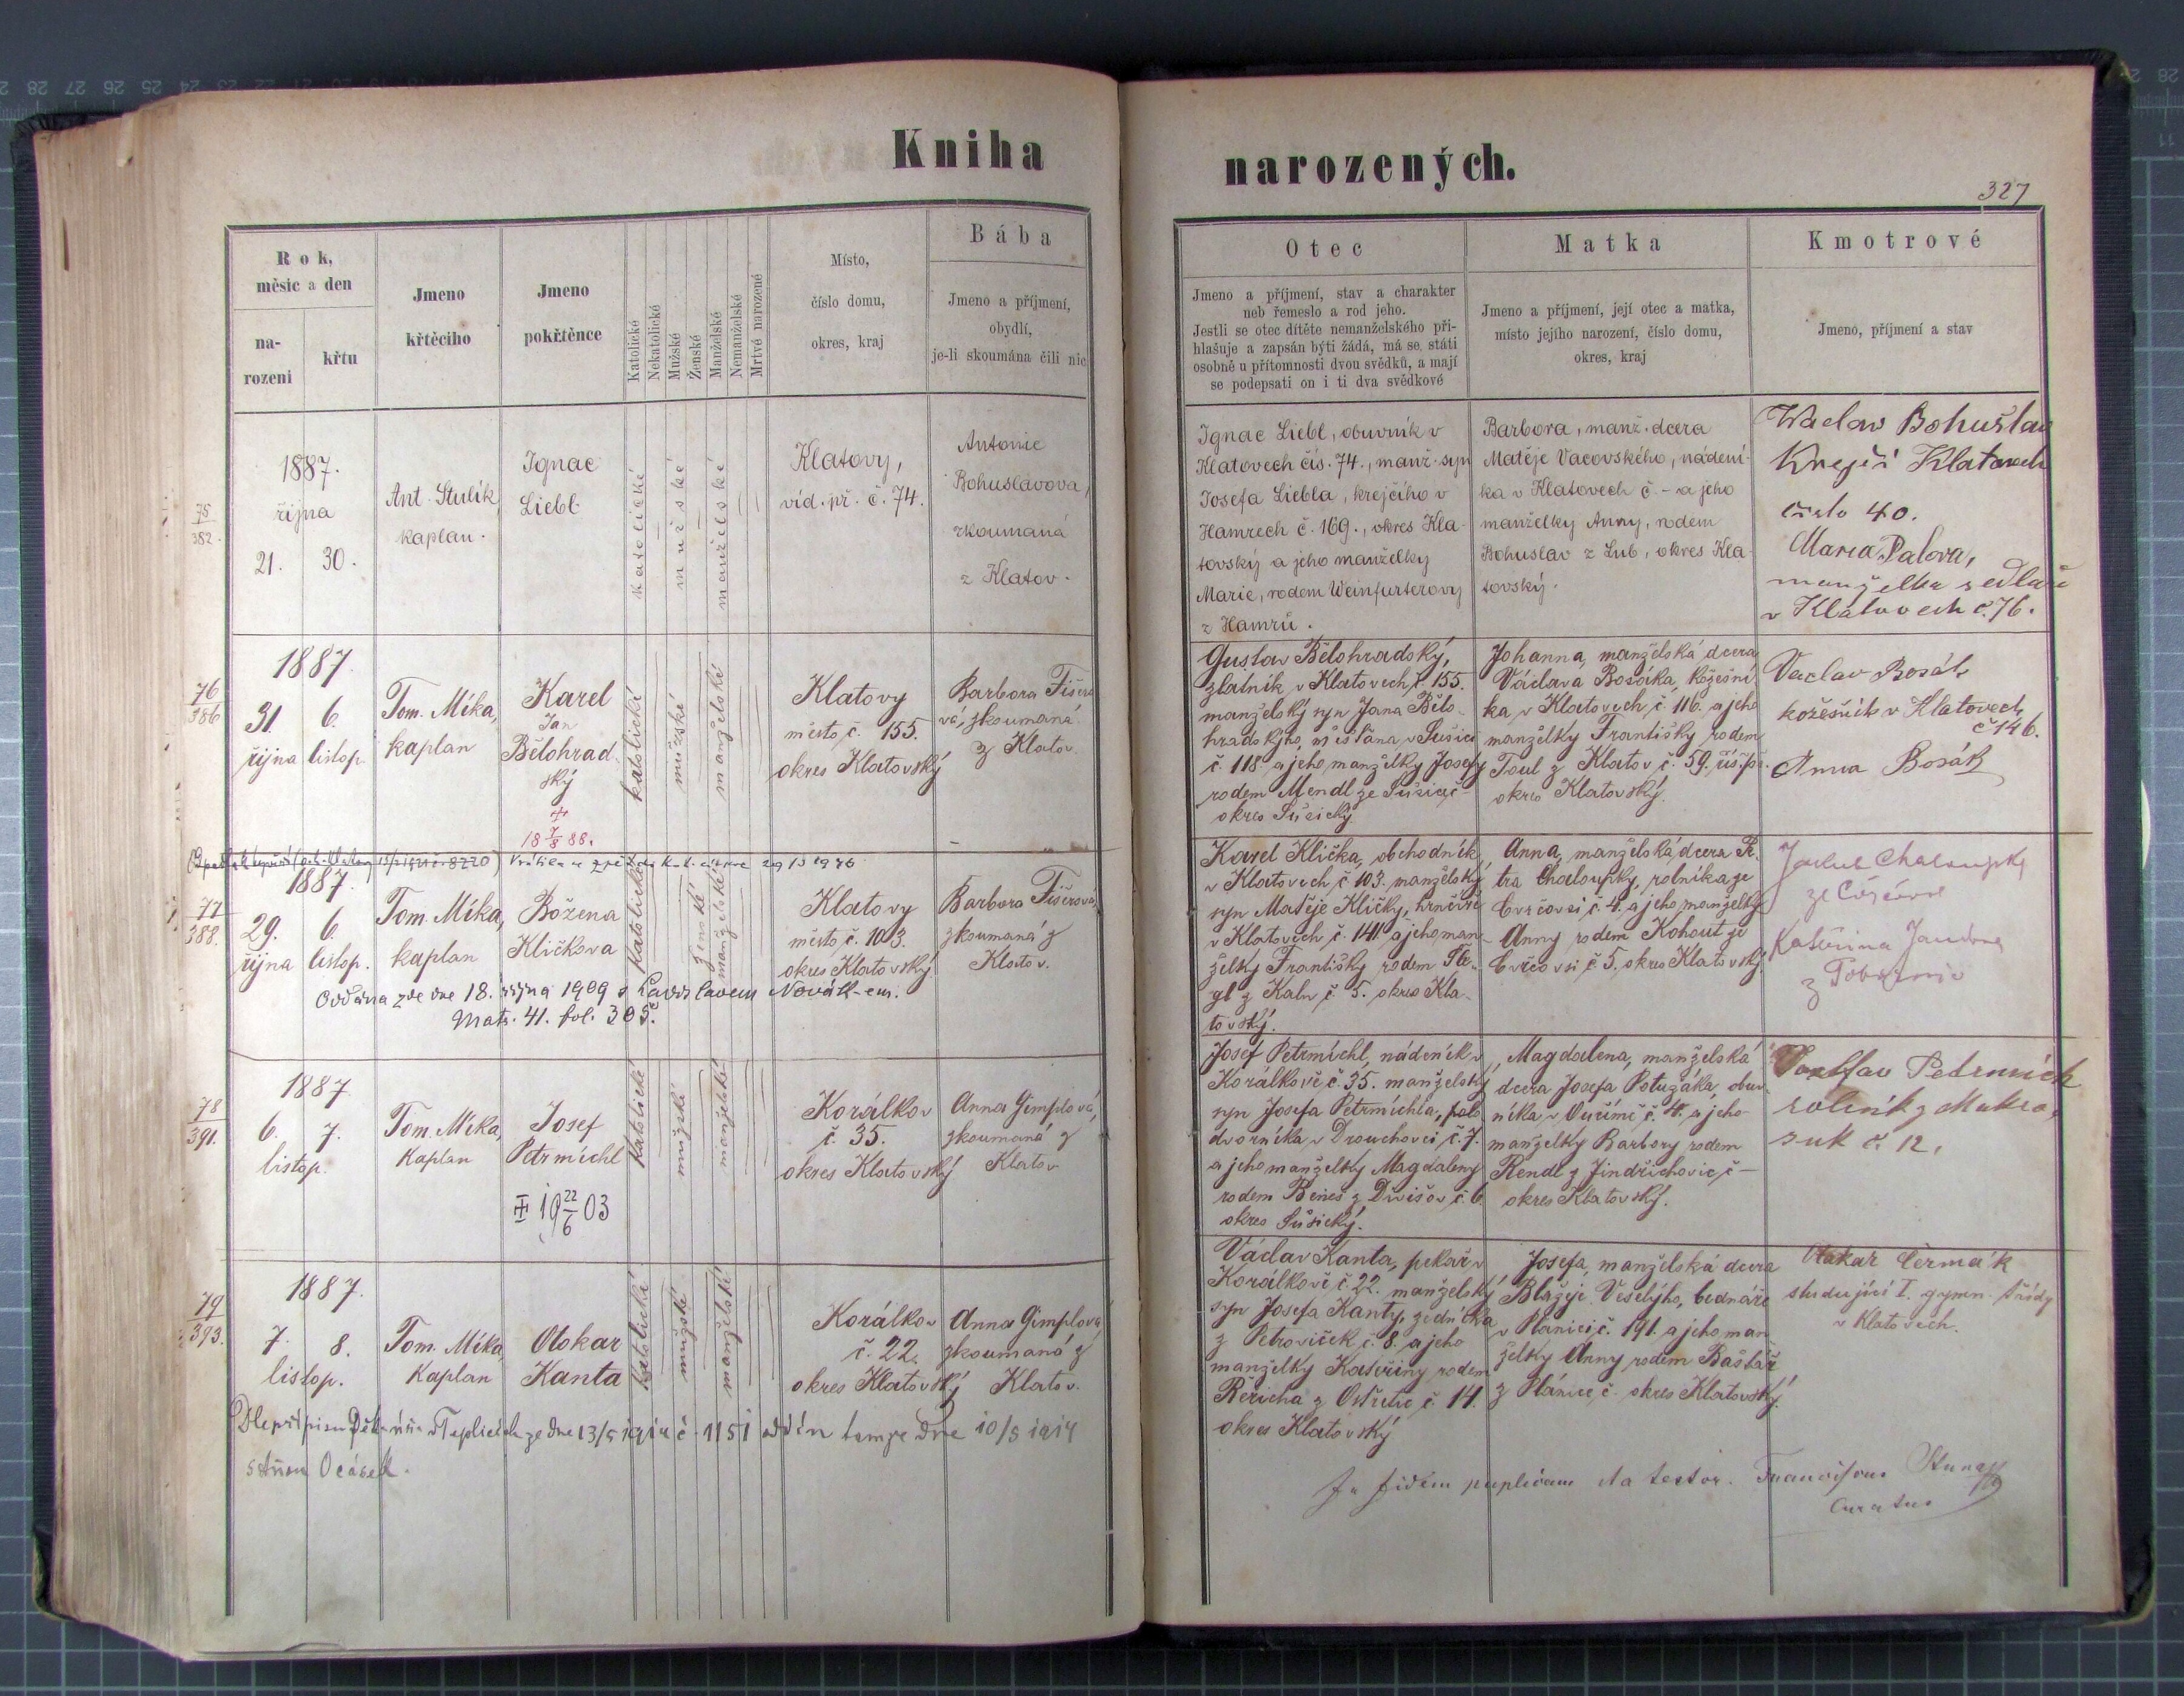 Kniha
narozených.
327
Rok,
měsíc a den
na-
rození
křtu
Jmeno
křtěcího
Jmeno
pokřtěnce
Katolické
Nekatolické
Mužské
Ženské
Manželské
Nemanželské
Mrtvě narozené
Místo,
číslo domu,
okres, kraj
Bába
Jmeno a příjmení,
obydlí,
je-li skoumána čili nic
Otec
Jmeno a příjmení, stav a charakter
neb řemeslo a rod jeho.
Jestli se otec dítěte nemanželského při-
hlašuje a zapsán býti žádá, má se státi
osobně u přítomnosti dvou svědků, a mají
se podepsati on i ti dva svědkové
Matka
Jmeno a příjmení, její otec a matka,
místo jejího narození, číslo domu,
okres, kraj
Kmotrové
Jmeno, příjmení a stav
75
382.
1887.
října
21. 30.
Ant. Stulík
kaplan.
Ignac
Liebl
katolické
mužské
manželské
Klatovy,
víd. př. č. 74.
Antonie
Bohuslavova,
zkoumaná
z Klatov.
Ignac Liebl, obuvník v
Klatovech čís. 74., manž. syn
Josefa Liebla, krejčího v
Hamrech č. 169., okres Kla-
tovský a jeho manželky
Marie, rodem Weinfurterovy
z Hamrů.
Barbora, manž. dcera
Matěje Vacovského, nádení-
ka v Klatovech č. - a jeho
manželky Anny, rodem
Bohuslav z Lub, okres Kla-
tovský.
Waclaw Bohuslav
Krejčí Klatovech
číslo 40.
Maria Palova,
manželka sedláře
v Klatovech č. 76.
76
386
1887.
31. 6.
října listop.
Tom. Míka,
kaplan
Karel
Jan
Bělohrad-
ský
18 7/8 88.
katolické
mužské
manželské
Klatovy
město, č. 155.
okres Klatovský
Barbora Fišero-
vá, zkoumaná
z Klatov.
Gustav Bělohradský,
zlatník v Klatovech č. 155.
manželský syn Jana Bělo-
hradského, měšťana v Sušici
č. 118 a jeho manželky Josefy
rodem Mendl ze Sušice, č -
okres Sušický
Johanna, manželská dcera
Václava Bosáka, kožešní-
ka v Klatovech č. 116. a jeho
manželky Františky rodem
Toul z Klatov č. 59. říš. př.
okres Klatovský.
Vaclav Bosák
kožešník v Klatovech
č 146.
Anna Bosák
77
388.
1887.
29. 6.
října listop.
Tom. Míka,
kaplan
Božena
Kličkova
Katolické
ženské
manželské
Klatovy
město, č. 103.
okres Klatovský
Barbora Fišerová,
zkoumaná z
Klatov.
Oddána zde dne 18. října 1909 s Ladislavem Novák-em.
Matr. 41. fol. 305.
Karel Klička, obchodník
v Klatovech č. 103. manželský
syn Matěje Kličky, hrnčíře
v Klatovech č. 141 a jeho man-
želky Františky rodem Fle-
gl z Kaln č. 5. okres Kla-
tovský.
Anna, manželská dcera Pe-
tra Chaloupky, rolníka ze
Cvrčovsi č. 4. a jeho manželky
Anny rodem Kohout ze
Cvrčovsi č. 5. okres Klatovský
Jakub Chaloupka
Kateřina
78
391.
1887
6. 7.
listop.
Tom. Míka,
Kaplan
Josef
Petrmichl
19 22/6 03
Katolické
mužské
manželské
Korálkov
č. 35.
okres Klatovský
Anna Gimplová,
zkoumaná z
Klatov
Josef Petrmichl, nádeník v
Korálkově č. 35. manželský
syn Josefa Petrmichla, polo-
dvorníka v Drouhovci č. 7.
a jeho manželky Magdaleny
rodem Beneš z Divišov č. 6.
okres Sušický.
Magdalena, manželská
dcera Josefa Potužáka, obuv-
níka v Ouřímě č. 4. a jeho
manželky Barbory rodem
Rendl z Jindřichovic, č -
okres Klatovský.
rolník z Mokro-
suk č. 12.
79
393.
1887.
7. 8.
listop.
Tom. Míka,
Kaplan
Otokar
Kanta
Katolické
mužské
manželské
Korálkov
č. 22.
okres Klatovský
Anna Gimplová
zkoumaná z
Klatov.
Dle přípisu Děk. úřadu v Teplicích ze dne 13/5 1914 č. 1151 oddán tamže dne 10/5 1914
s Annou Ocásek.
Václav Kanta, pekař v
Korálkově č. 22. manželský
syn Josefa Kanty, zedníka
z Petroviček č. 8. a jeho
manželky Kateřiny rodem
Řeřicha z Ostřetic č. 14.
okres Klatovský
Josefa, manželská dcera
Blažeje Veselýho, bednáře
v Plánici č. 191. a jeho man-
želky Anny rodem Bašťář
z Plánice, č. okres Klatovský.
Otakar Čermák
studující I. gymn. třídy
v Klatovech.
In fidem publicam Attestor. Franciscus
Curatus